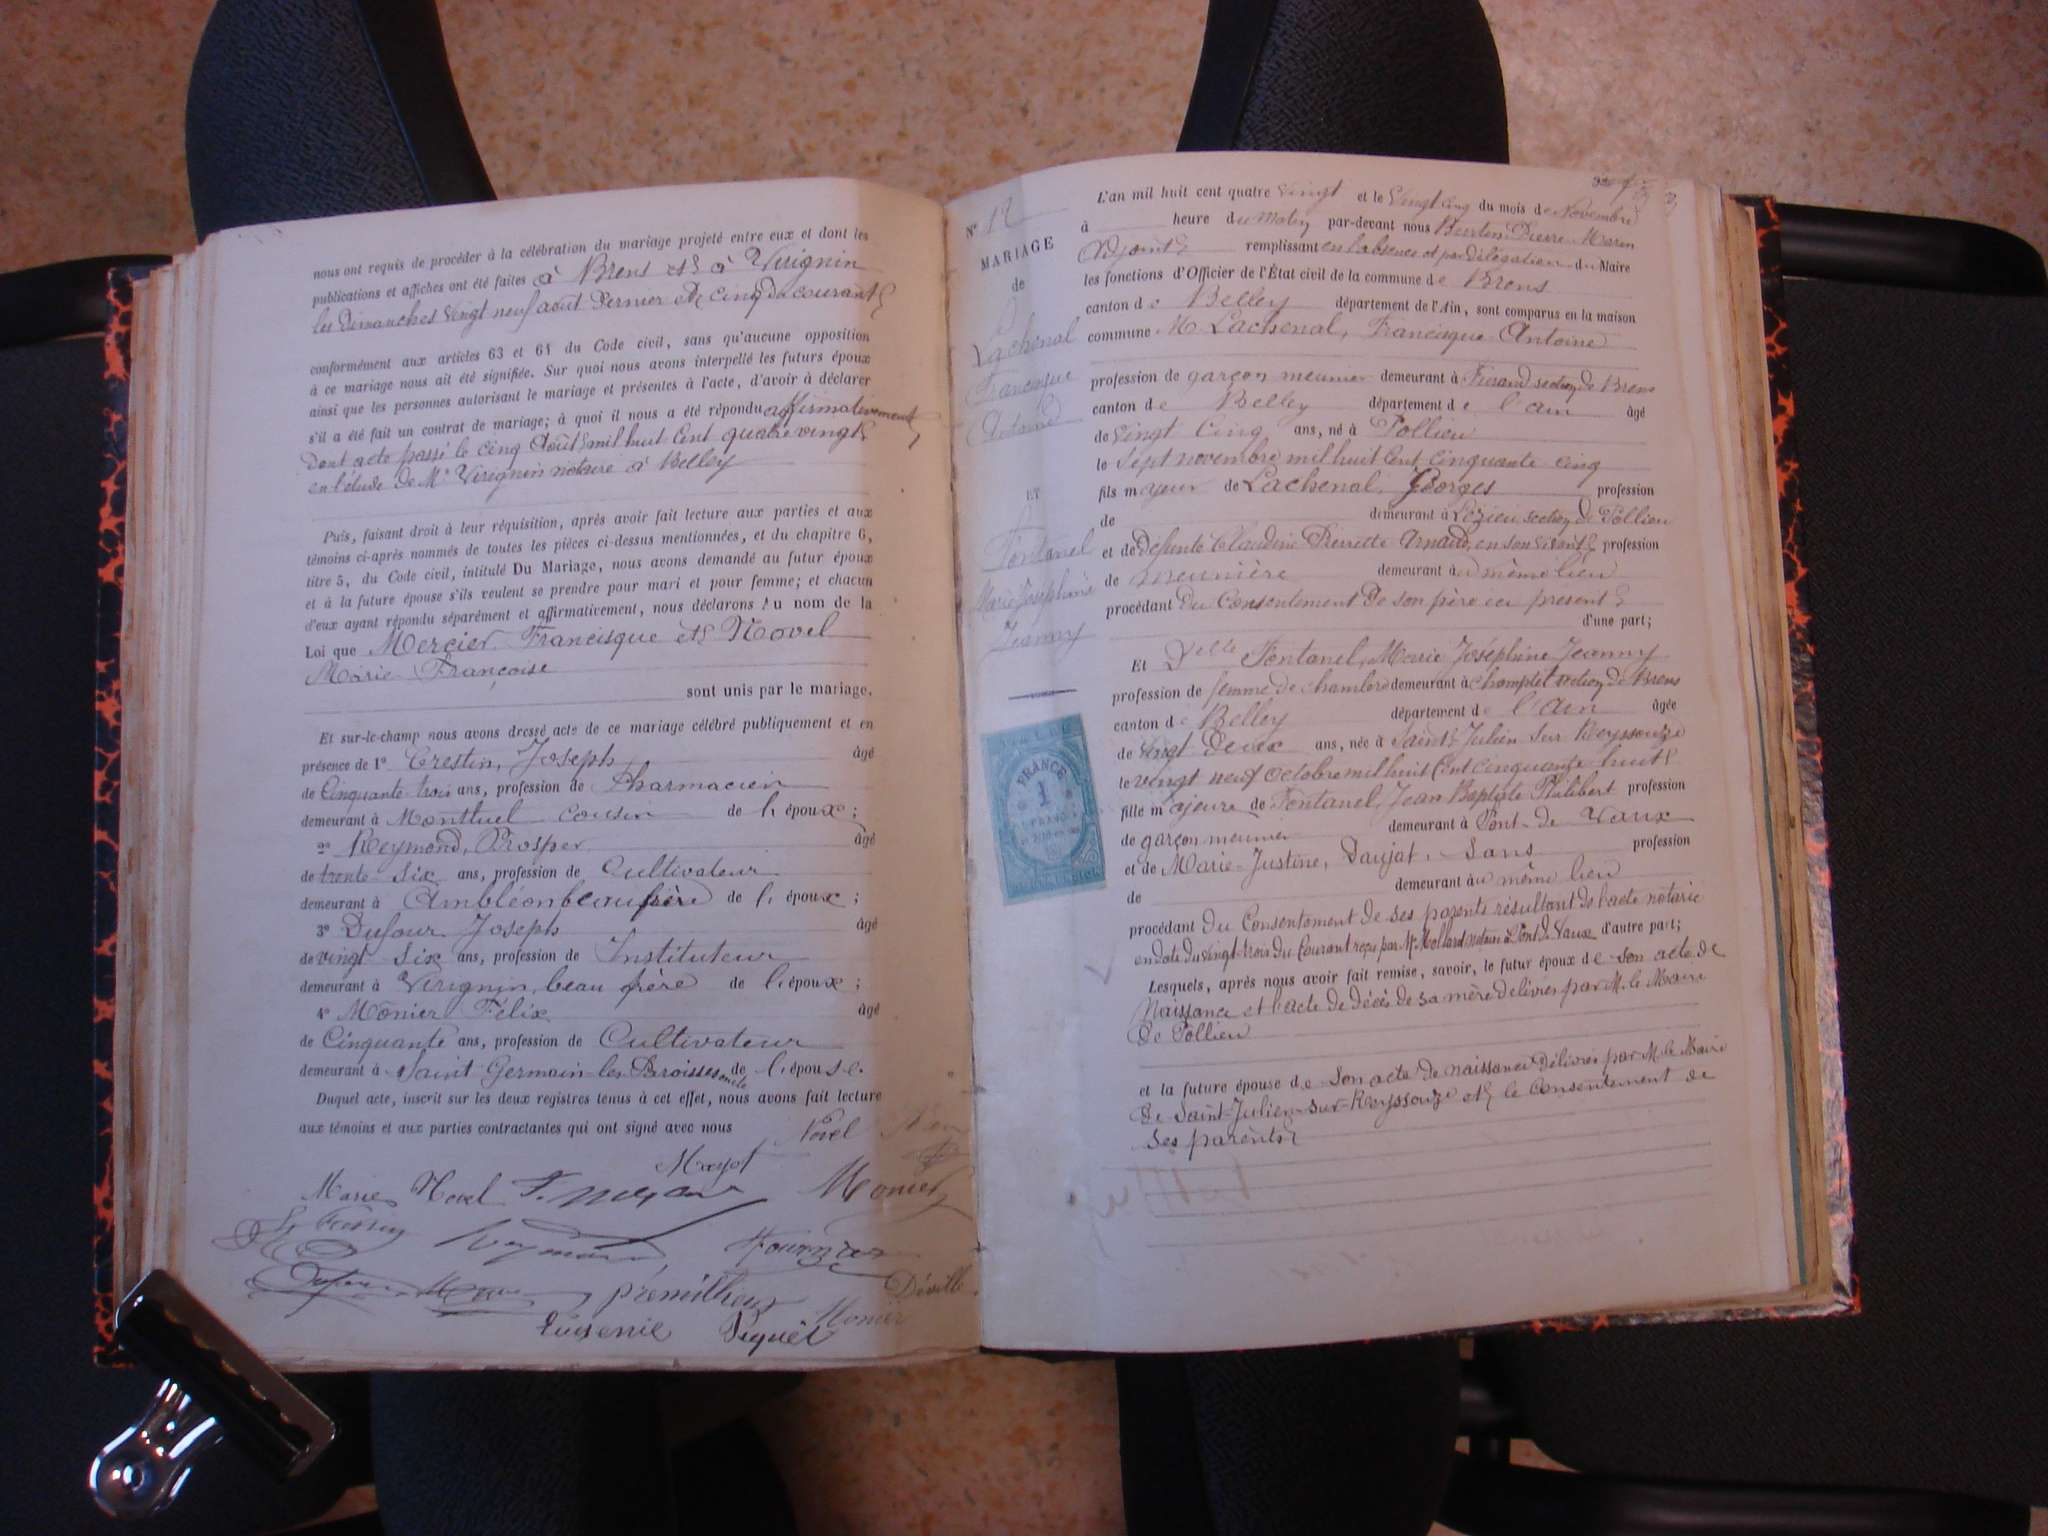 nous ont requis de procéder à la célébration du mariage projeté entre eux et dont les
publications et affiches ont été faites à Brens et à Virignin
les Dimanches vingt neuf août dernier et cinq du courant
conformément aux articles 63 et 64 du Code civil, sans qu'aucune opposition
à ce mariage nous ait été signifiée. Sur quoi nous avons interpellé les futurs époux
ainsi que les personnes autorisant le mariage et présentes à l'acte, d'avoir à déclarer
s'il a été fait un contrat de mariage; à quoi il nous a été répondu affirmativement
dont acte passé le cinq Août mil huit cent quatre vingt
en l'étude de Me Virignin notaire à Belley
Puis, faisant droit à leur réquisition, après avoir fait lecture aux parties et aux
témoins ci-après nommés de toutes les pièces ci-dessus mentionnées, et du chapitre 6,
titre 5, du Code civil, intitulé Du Mariage, nous avons demandé au futur époux
et à la future épouse s'ils veulent se prendre pour mari et pour femme; et chacun
d'eux ayant répondu séparément et affirmativement, nous déclarons Au nom de la
Loi que Mercier Francisque et Novel
Marie Françoise
sont unis par le mariage.
Et sur-le-champ nous avons dressé acte de ce mariage célébré publiquement et en
présence de 1° Crestin, Joseph âgé
de Cinquante trois ans, profession de Pharmacien
demeurant à Montluel cousin de l'époux ;
2° Reymond, Prosper âgé
de trente six ans, profession de Cultivateur
demeurant à Ambléon beau frère de l'époux ;
3° Dufour Joseph âgé
de vingt six ans, profession de Instituteur
demeurant à Virignin, beau frère de l'époux ;
4° Monier Félix âgé
de Cinquante ans, profession de Cultivateur
demeurant à Saint Germain les Paroisses oncle de l'épouse.
Duquel acte, inscrit sur les deux registres tenus à cet effet, nous avons fait lecture
aux témoins et aux parties contractantes qui ont signé avec nous
Novel
Marie Novel Monier
Reymond
Déville
Eugenie Piquet Monier
N° 12
MARIAGE
de
Lachenal
Francisque
Antoine
ET
Fontanel
Marie Joséphine
Jeanny
FRANCE
1
FRANC
L'an mil huit cent quatre vingt et le vingt cinq du mois de Novembre
à heure du Matin par-devant nous Burtin Pierre Marin
Adjoint remplissant en l'absence et par délégation du Maire
les fonctions d'Officier de l'État civil de la commune de Brens
canton de Belley département de l'Ain, sont comparus en la maison
commune M. Lachenal, Francisque Antoine
profession de garçon meunier demeurant à section de Brens
canton de Belley département de l'ain âgé
de vingt cinq ans, né à Pollieu
le sept novembre mil huit cent cinquante cinq
fils majeur de Lachenal, Georges profession
de demeurant à section de Pollieu
et de Defunte Claudine Pierrette Arnaud, en son vivant profession
de meunière demeurant au même lieu
procédant du Consentement de son père ici présent
d'une part;
Et Delle Fontanel, Marie Joséphine Jeanny
profession de femme de chambre demeurant à section de Brens
canton de Belley département de l'ain âgée
de vingt deux ans, née à Saint Julien sur Reyssouze
le vingt neuf octobre mil huit cent cinquante huit
fille majeure de Fontanel, Jean Baptiste Philibert profession
de garçon meunier demeurant à Pont-de Vaux
et de Marie-Justine, Daujat, Sans profession
de demeurant au même lieu
procédant du Consentement de ses parents résultant de l'acte notarié
en date du vingt trois du courant reçu par Me Mollard notaire à Pont de Vaux d'autre part;
Lesquels, après nous avoir fait remise, savoir, le futur époux de son acte de
Naissance et l'acte de décès de sa mère délivrés par M. le Maire
de Pollieu
et la future épouse de son acte de naissance délivré par M. le Maire
de Saint-Julien-sur-Reyssouze et le consentement de
ses parents